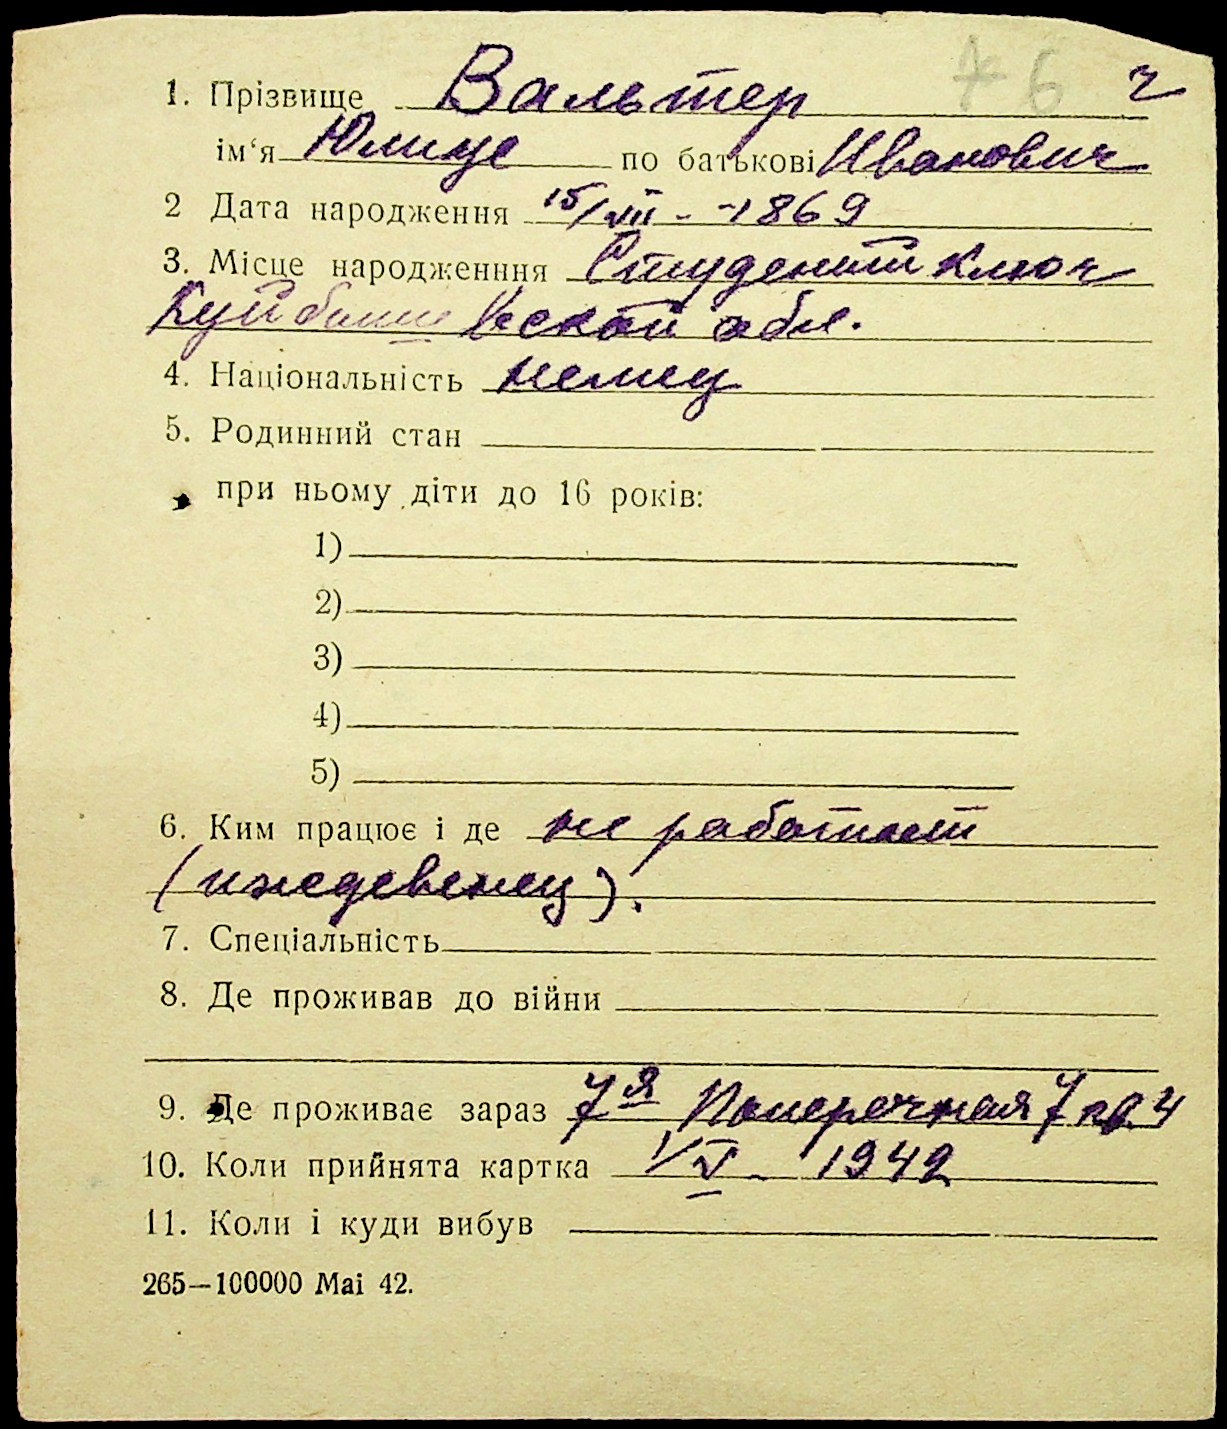 76 ч
1. Прізвище Вальтер
ім‘я Юлиус по батькові Иванович
2 Дата народження 15/VII - 1869
3. Місце народженння Студеный Ключ
Куйбышевской обл.
4. Національність немец
5. Родинний стан
при ньому діти до 16 років:
1)
2)
3)
4)
5)
6. Ким працює і де не работает
(иждевенец).
7. Спеціальність
8. Де проживав до війни
9. Де проживає зараз 7я Поперечная 7 кв. 4
10. Коли прийнята картка 1/V - 1942
11. Коли і куди вибув
265—100000 Mai 42.